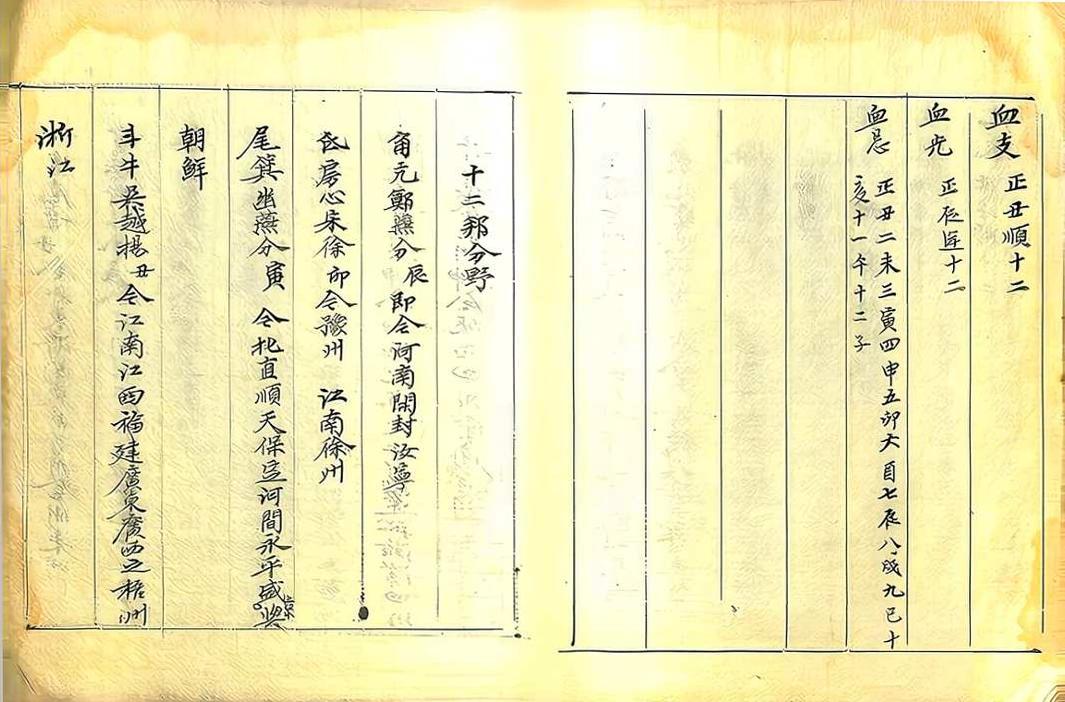 血支 正丑順十二
血光 正辰逆十二
血忌 正丑二未三寅四申五卯六酉七辰八戌九巳十
亥十一午十二子
十二邦分野
角亢鄭兗分辰即今河南開封汝寧
氐房心宋徐卯今豫州 江南徐州
尾箕幽燕分寅 今北直順天保定河間永平盛京
朝鮮
斗牛吳越揚丑今江南江西福建廣東廣西之梧州
浙江